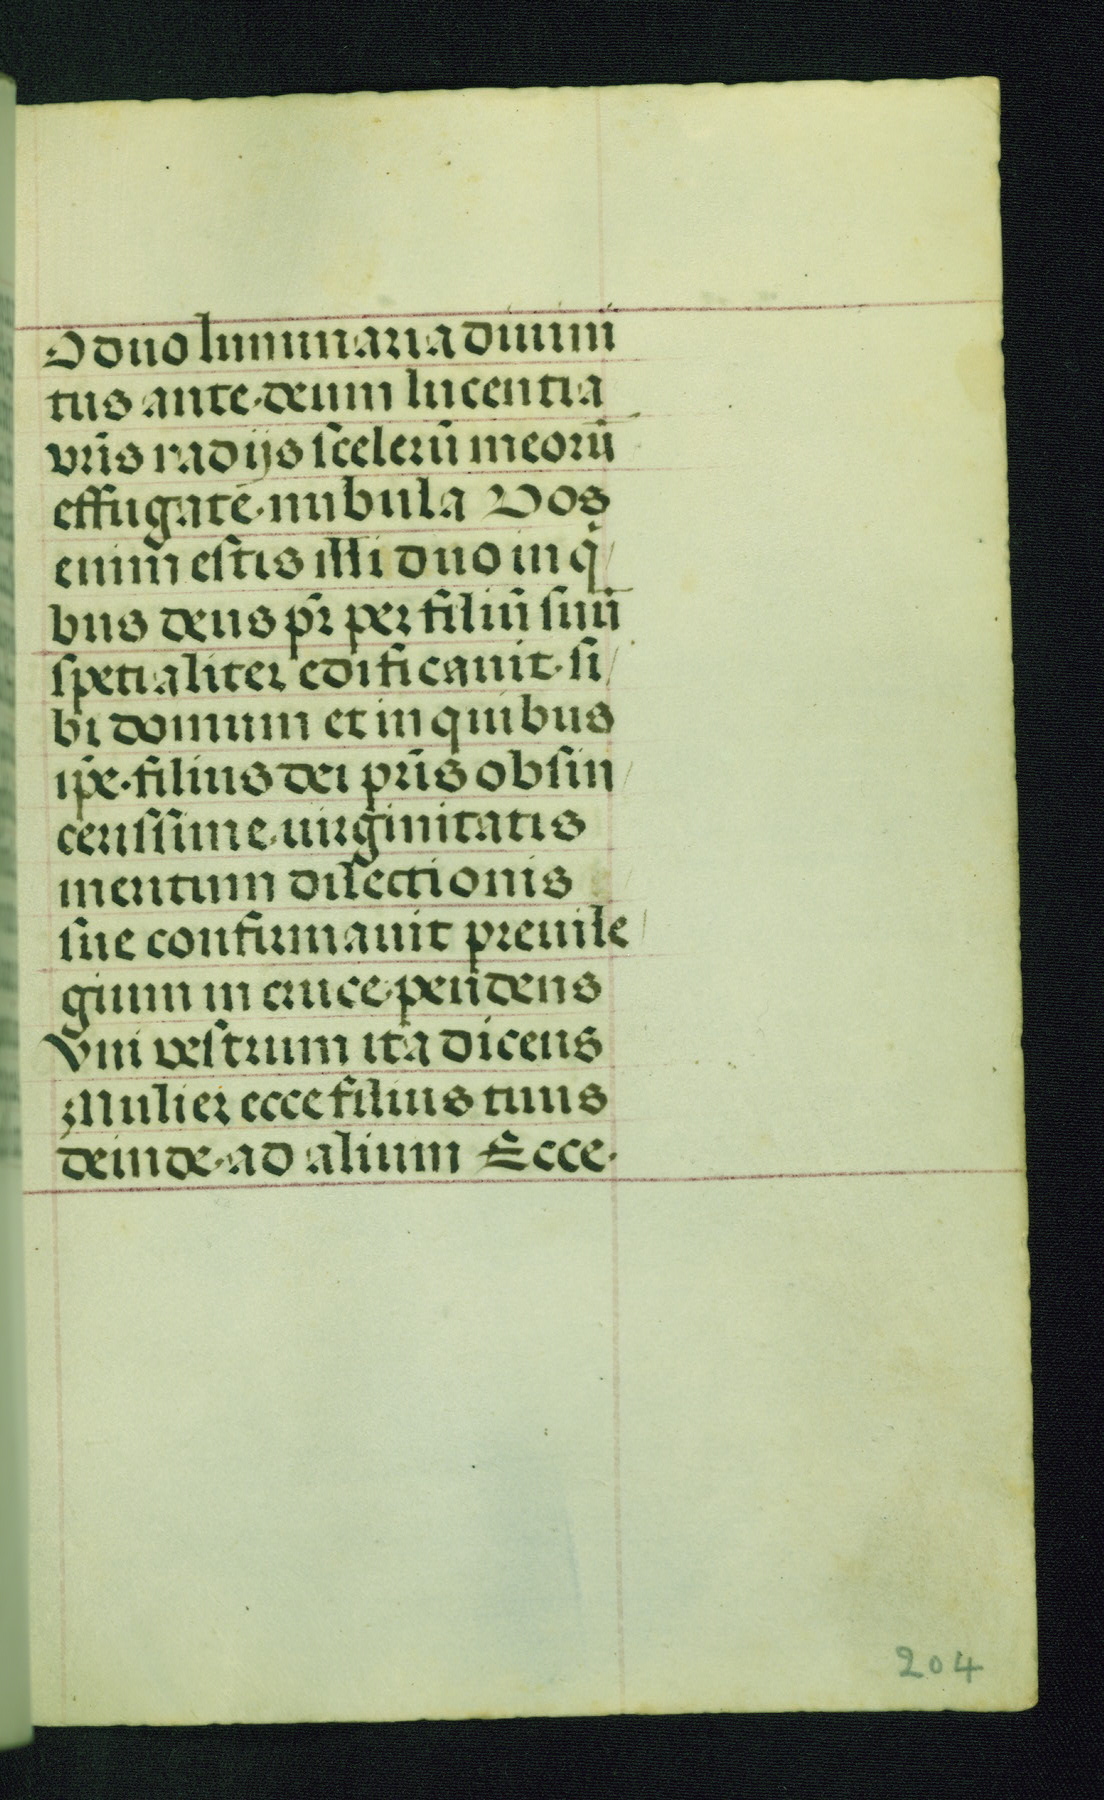 O duo luminaria diuini
tus ante deum lucentia
vr̄is radijs scelerū meorū
effugate nubula Vos
enim estis illi duo in q̇
bus deus pr̄ per filiū suū
spetialiter edificauit si
bi domum et in quibus
ip̄e filius dei pr̄is ob sin
cerissime uirginitatis
meritum dilectionis
sue confirmauit preuile
gium in cruce pendens
Vni vestrum ita dicens
Mulier ecce filius tuus
deinde ad alium Ecce
204